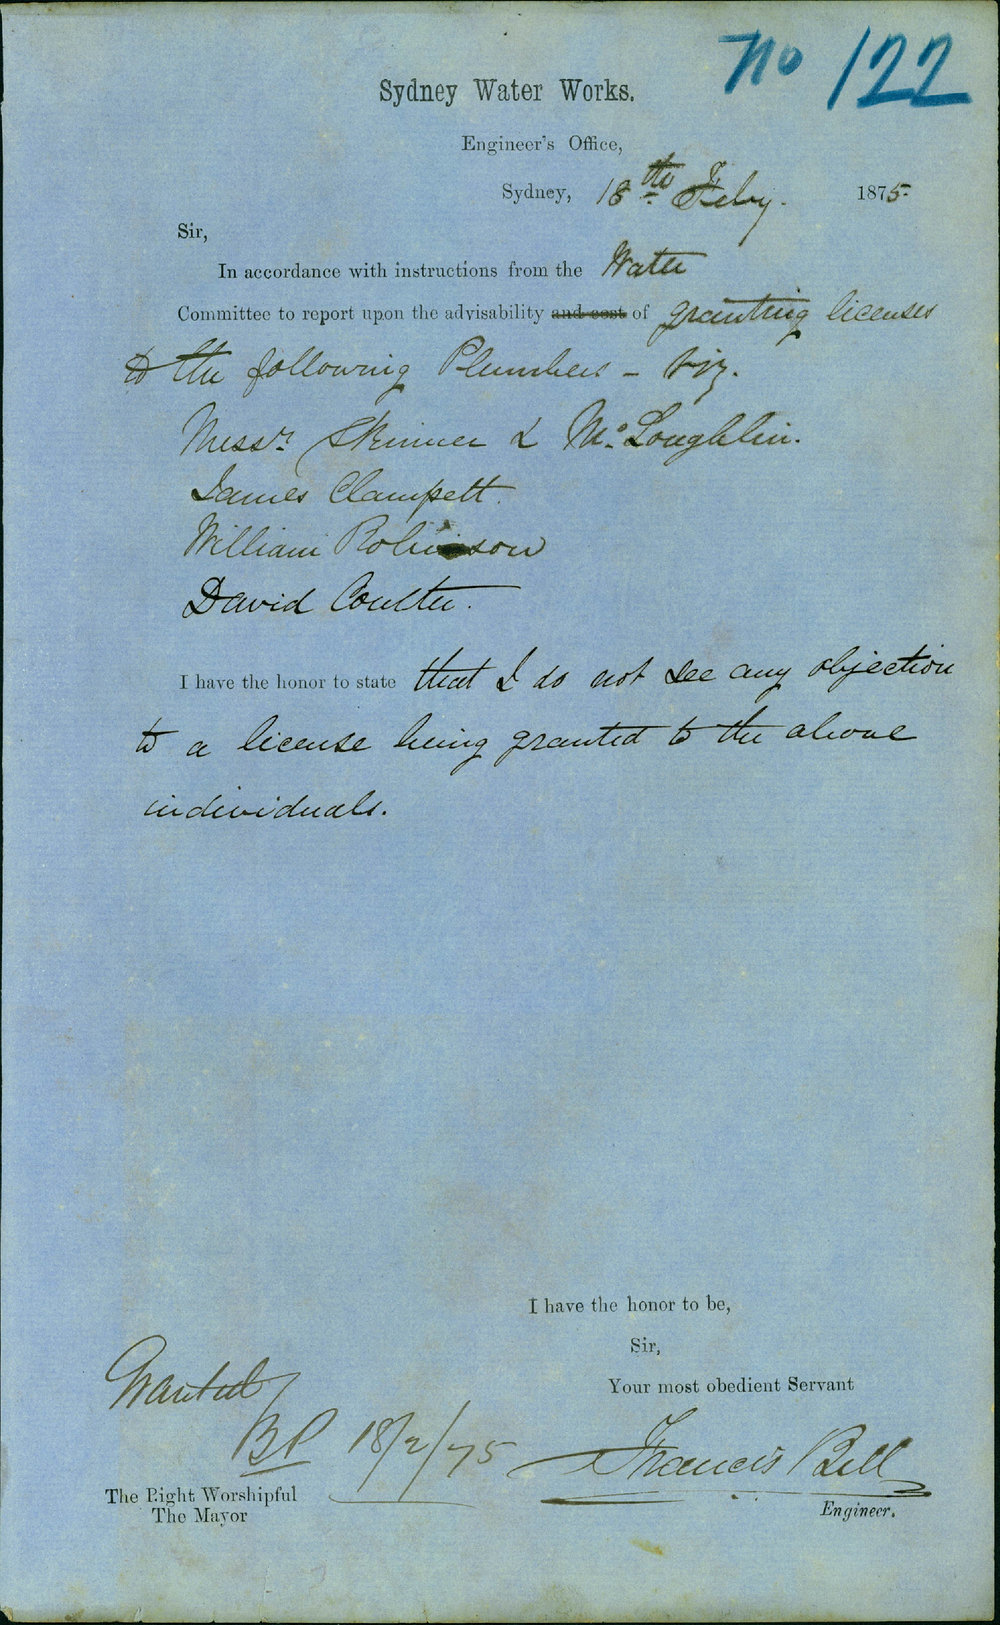 No 122
Sydney Water Works.
Engineer's Office,
Sydney, 18th Feby. 1875
Sir,
In accordance with instructions from the Water
Committee to report upon the advisability and cost of granting licenses
to the following Plumbers – viz.
Messrs Skinner & McLoughlin.
James Clampett.
William Robinson
David Coulter.
I have the honor to state that I do not see any objection
to a license being granted to the above
individuals.
I have the honor to be,
Sir,
Your most obedient Servant
Granted
BP 18/2/75
Francis Bell
The Right Worshipful
The Mayor
Engineer.